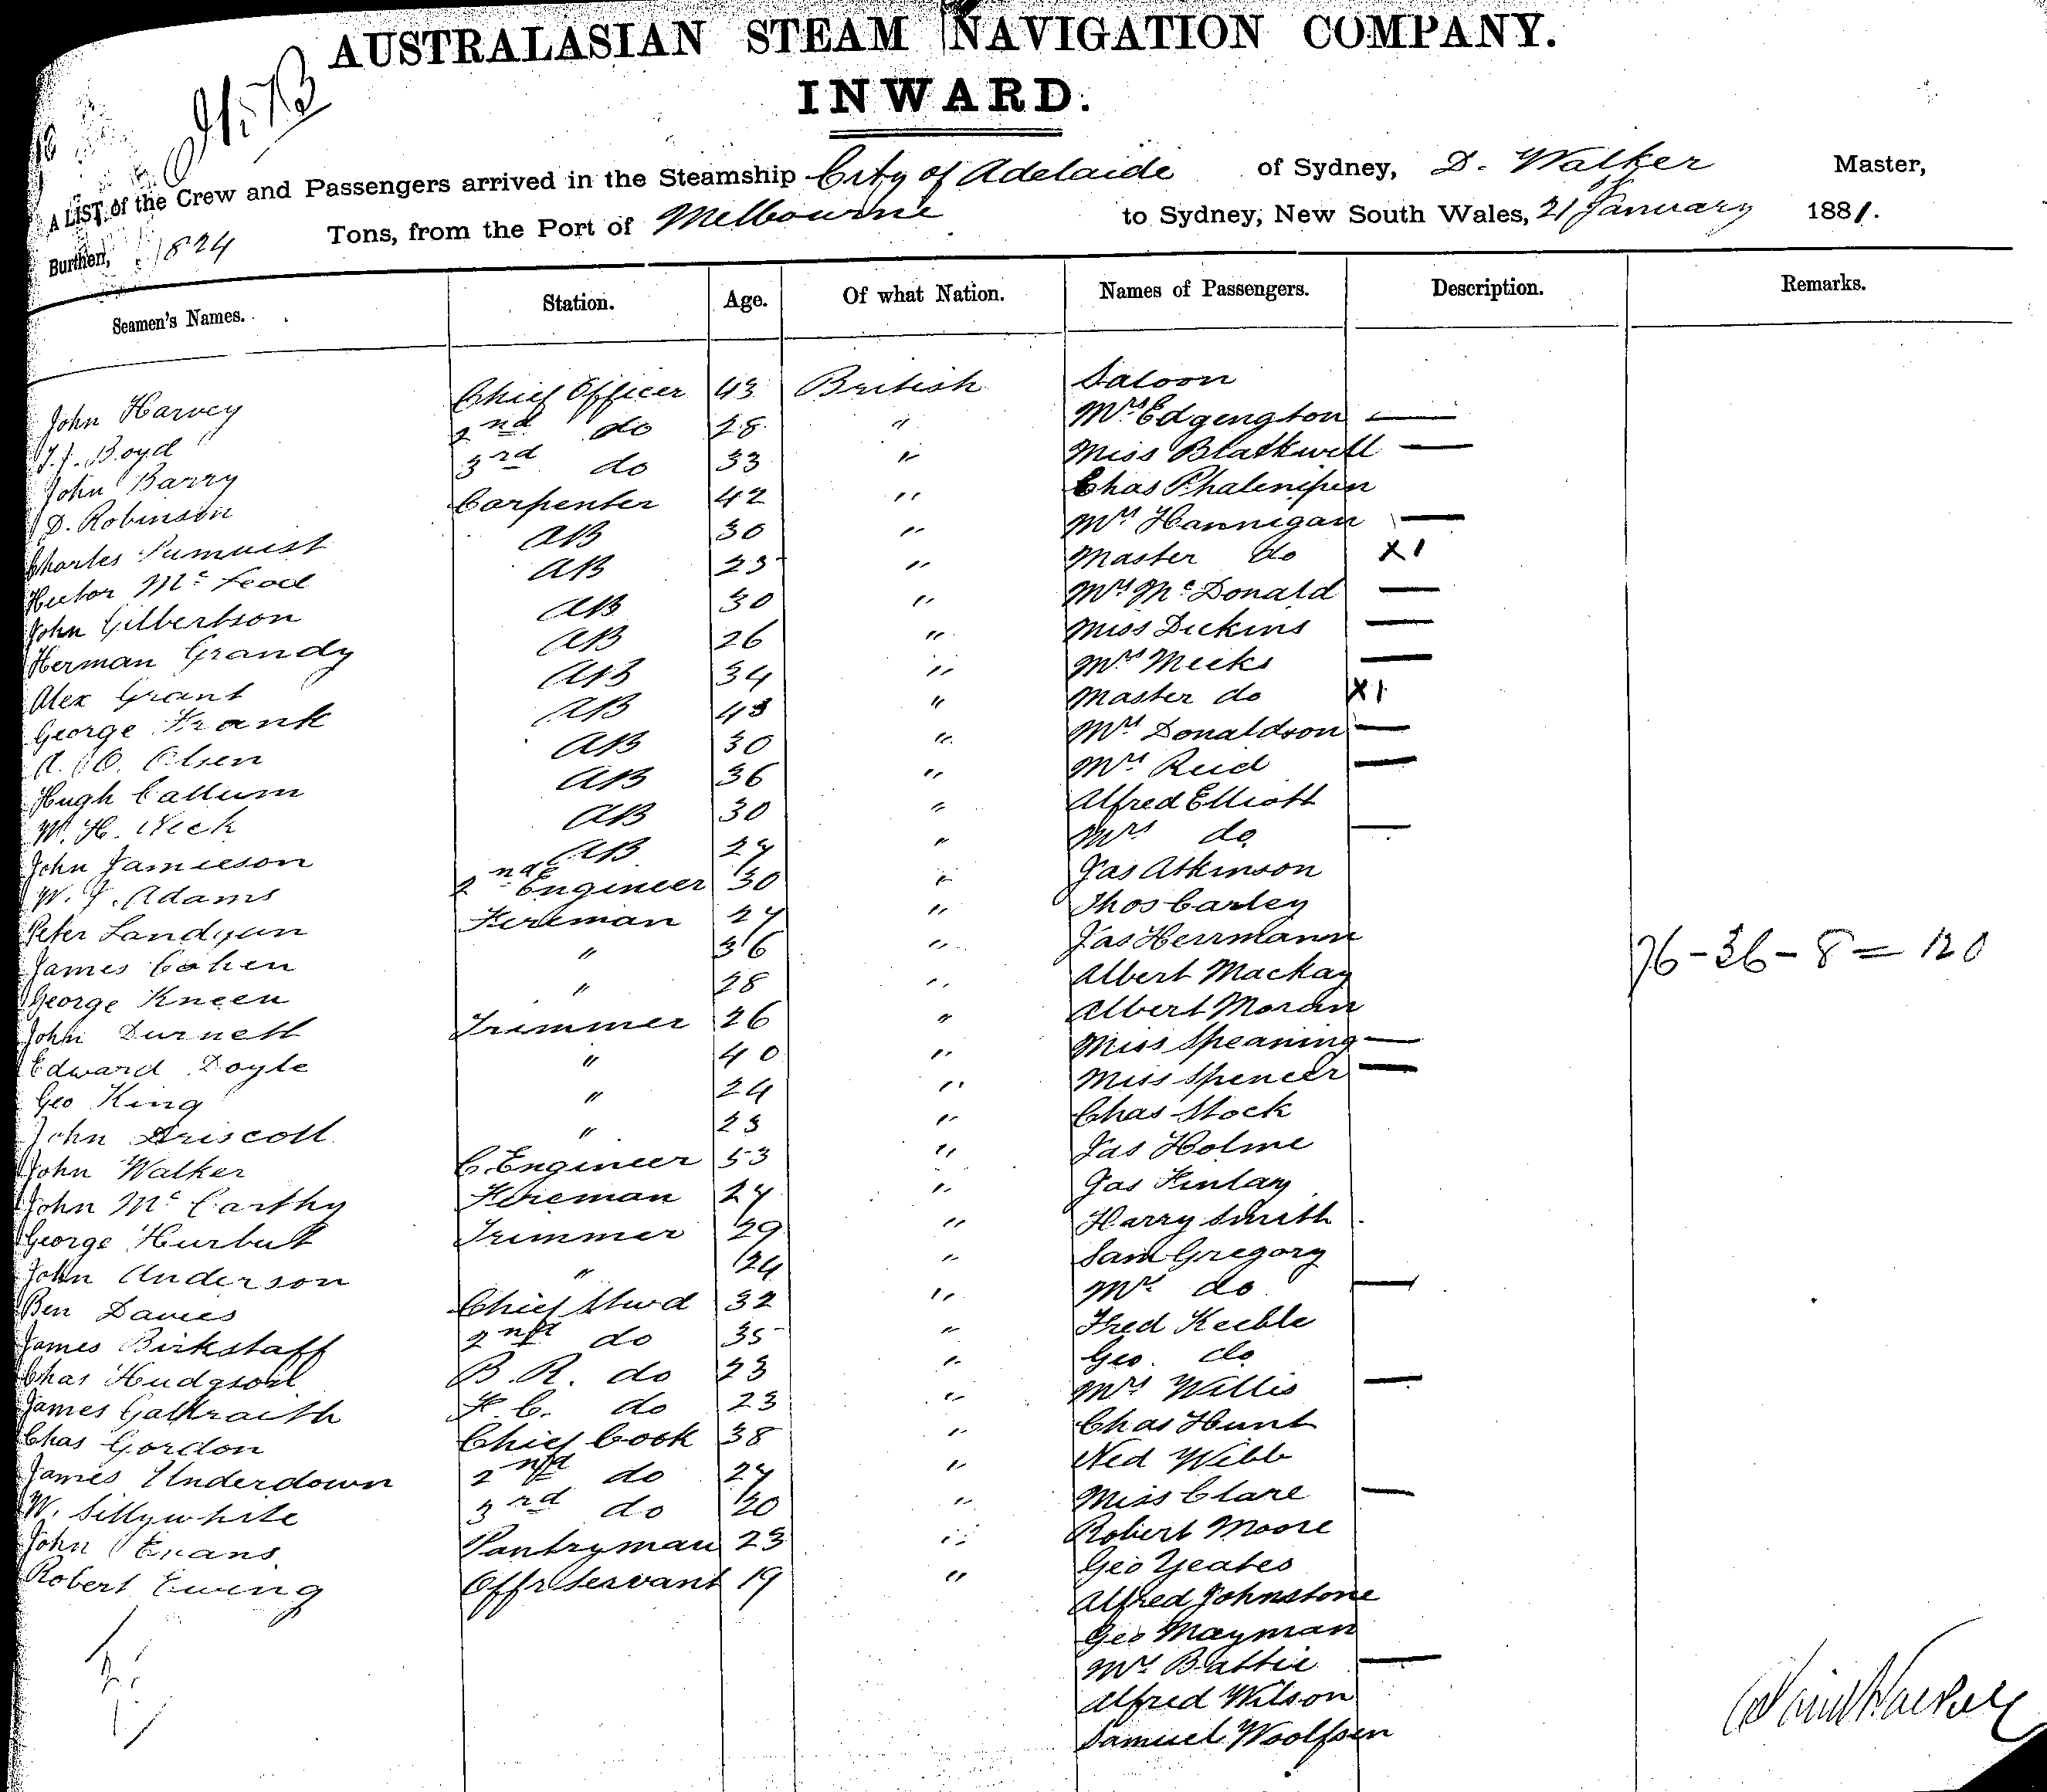 AUSTRALASIAN STEAM NAVIGATION COMPANY.
INWARD.
A LIST of the Crew and Passengers arrived in the Steamship City of Adelaide of Sydney, D. Walker Master,
Burthen, 1824 Tons, from the Port of Melbourne to Sydney, New South Wales, 21 January 1881.
Seamen's Names. Station. Age. Of what Nation. Names of Passengers. Description. Remarks.
Saloon
John Harvey Chief Officer 43 British Mrs Edgengton —
J.J. Boyd 2nd do 28 " Miss Blackwell —
John Barry 3rd do 33 " Chas
D. Robinson Carpenter 42 " Mrs Hannigan —
Charles AB 30 " Master do X1
Hector McLeod AB 25 " Mrs McDonald —
John Gilbertson AB 30 " Miss Dickins —
Herman Grandy AB 26 " Mrs Meeks —
Alex Grant AB 34 " Master do X1
George Frank AB 43 " Mrs Donaldson —
A. O. Olsen AB 30 " Mrs Reid —
Hugh Callum AB 36 " Alfred Elliott
W. H. AB 30 " Mrs do —
John Jamieson AB 27 " Jas Atkinson
W. J. Adams 2nd Engineer 30 " Thos Carley
Peter Fireman 27 " Jas Herrmann
James Cohen " 36 " Albert Mackay
George Kneen " 28 " Albert Moran
John Durnell Trimmer 26 " Miss Speaning —
Edward Doyle " 40 " Miss Spencer —
Geo King " 24 " Chas Stock
John Driscoll " 23 " Jas Holme
John Walker C. Engineer 53 " Jas Finlay
John McCarthy Fireman 27 " Harry Smith
George Hurbut Trimmer 29 " Sam Gregory
John Anderson " 24 " Mrs do —
Ben Davies Chief Stwd 32 " Fred Keeble
James Birkstaff 2nd do 35 " Geo. do
Chas Hudgson B. R. do 23 " Mrs Willis —
James Galkraith F. C. do 23 " Chas Hunt
Chas Gordon Chief Cook 38 " Ned Webb
James Underdown 2nd do 27 " Miss Clare —
W. Sillywhite 3rd do 20 " Robert Moore
John Evans Pantryman 23 " Geo Yeates
Robert Ewing Offr Servant 19 " Alfred Johnstone
Geo Mayman
Mrs Battie —
Alfred Wilson
Samuel Woolfsen
76 - 36 - 8 = 120